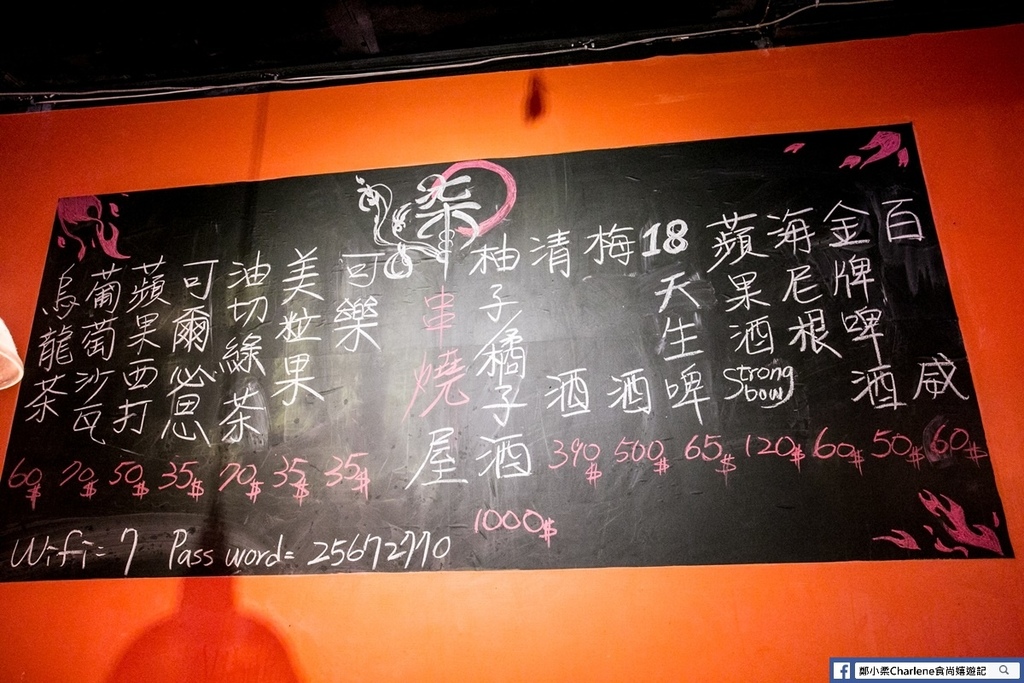 百威
60$
金牌啤酒
50$
海尼根
60$
蘋果酒
Strong
bow
120$
18天生啤
65$
梅酒
500$
清酒
390$
柚子/橘子酒
1000$
柒串燒屋
可樂
35$
美粒果
35$
油切綠茶
70$
可爾必思
35$
蘋果西打
50$
葡萄沙瓦
70$
烏龍茶
60$
Wifi=7 Password=25672770
鄭小柔Charlene食尚嬉遊記